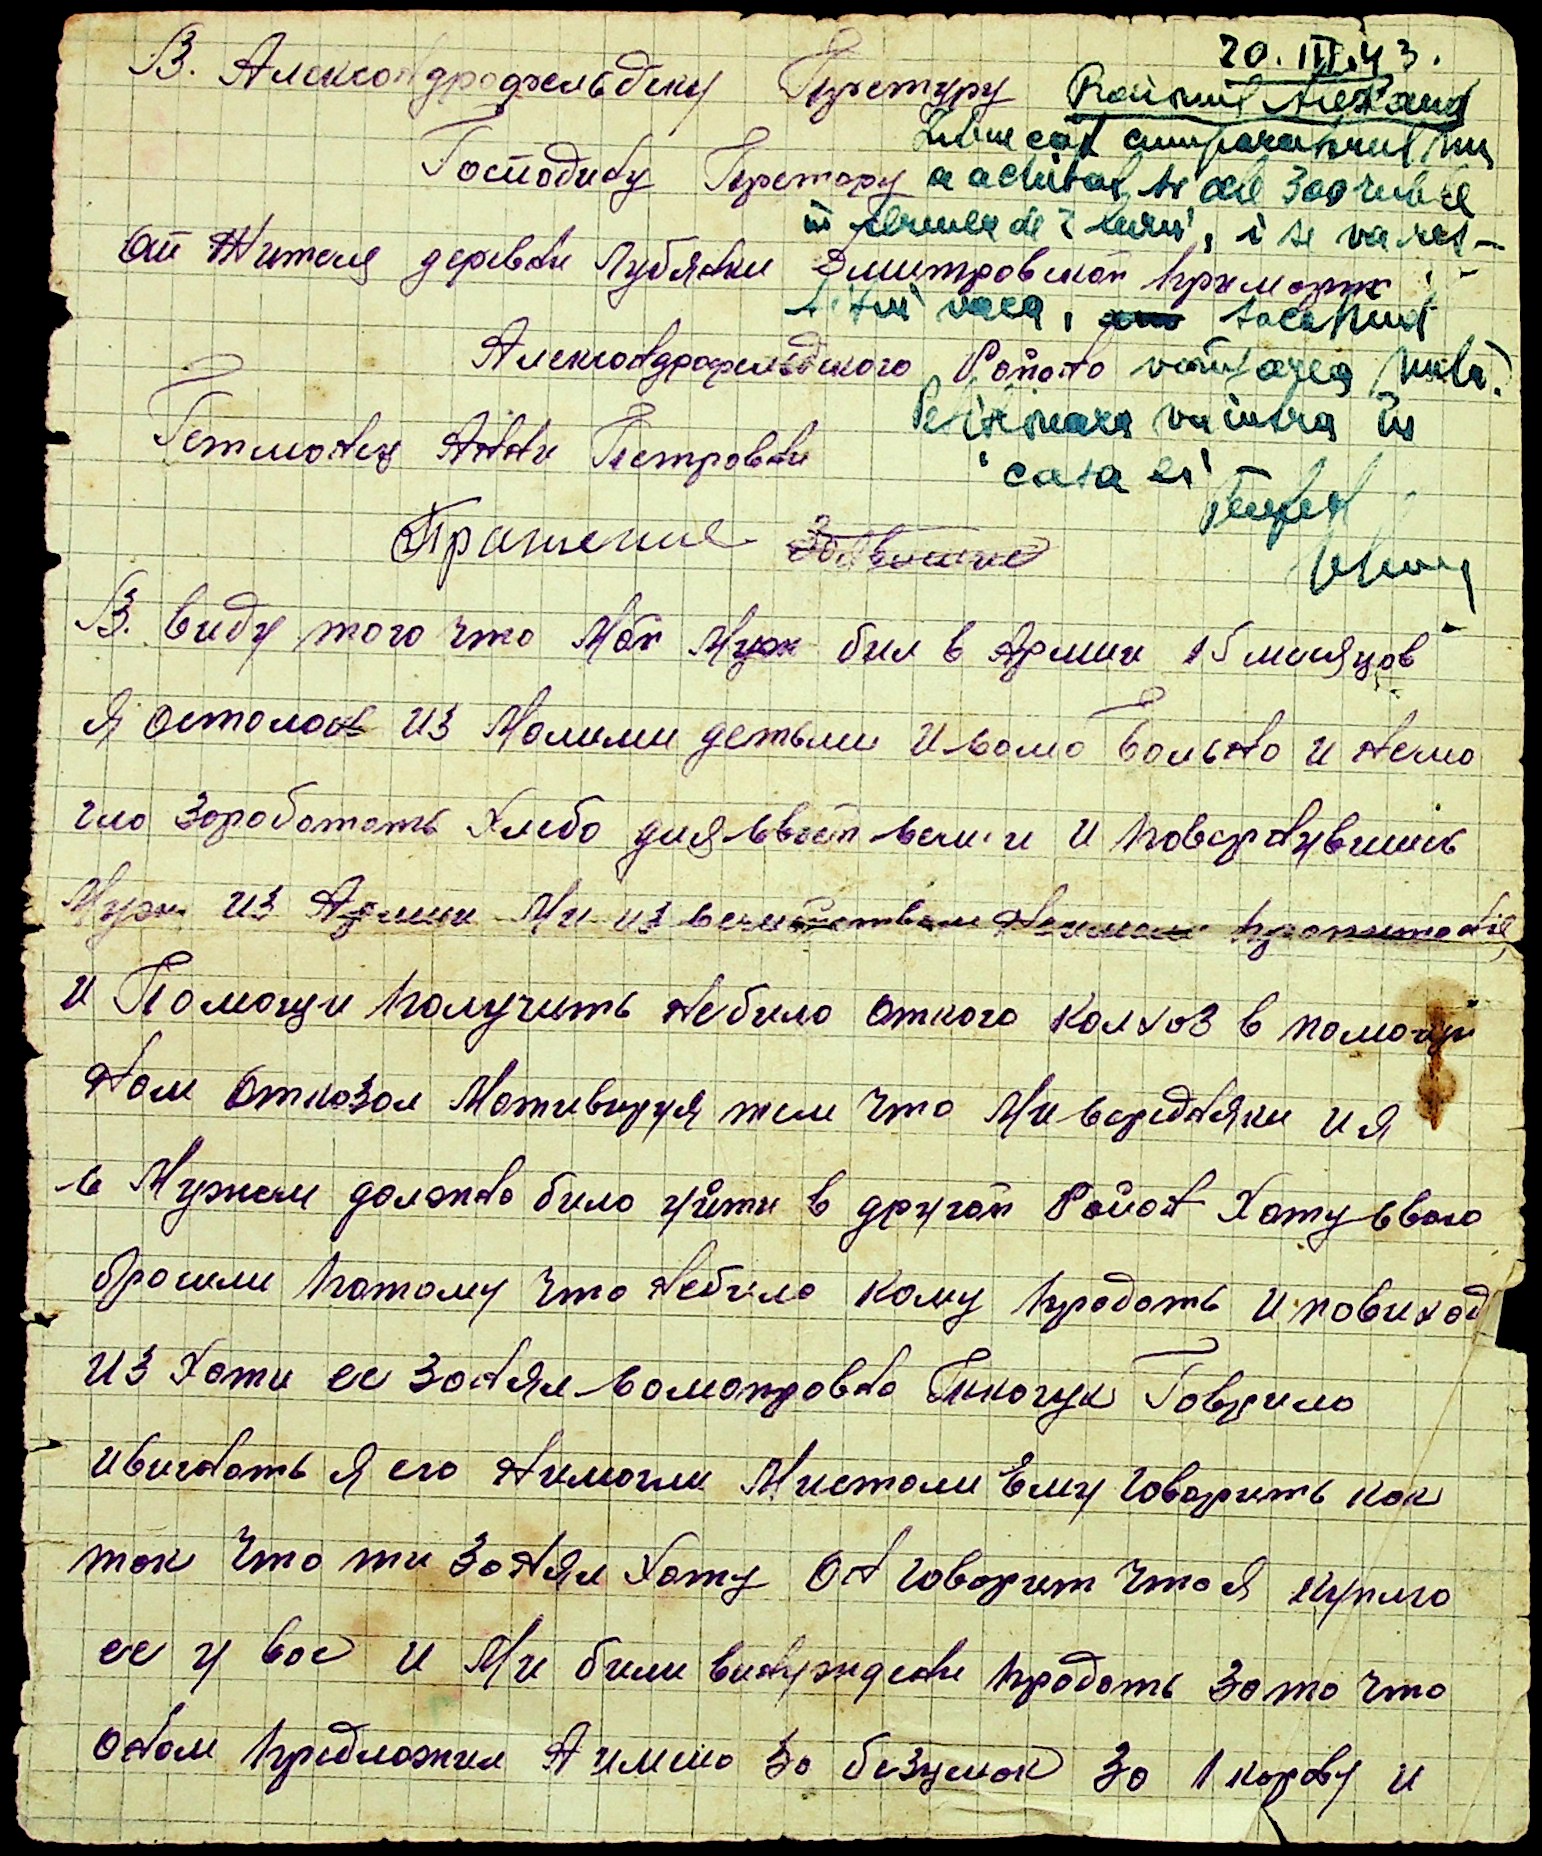 20. III. 43.
В. Александродфельдску Претуру
Господину Претору
a achitat
от Жителя деревни Лубянки Дмитровской Примарии
vaca,
Александрофельдского Района
vânzarea nulă.
Гетманец Анни Петровни
Petiționara va intra în
casa ei
Прашение Заявление
В. виду того что Мой Муж бил в Армии 15 месяцов
Я осталась из Малими детьми и сама Больна и немо
гла Заработать Хлеба для своей семи и повернувшись
Муж из Армии Ми из семейством Неимели пропитание,
и Помощи получить небило откого колхоз в помощи
Нам отказал Мотивируя тем что Ми середняки и я
с Мужем должна била уйти в другой Район Хату свою
бросили потому что небило кому продать и повиход
из Хати ее занял самоправно Ткачук Гаврило
ивигнать я его Нимогли Мистали Ему Говорить как
так что ти занял Хату Он Говорит что я куплю
ее у вас и Ми били винуждени продать зато что
оннам предложил А имено за безценок за 1 корову и